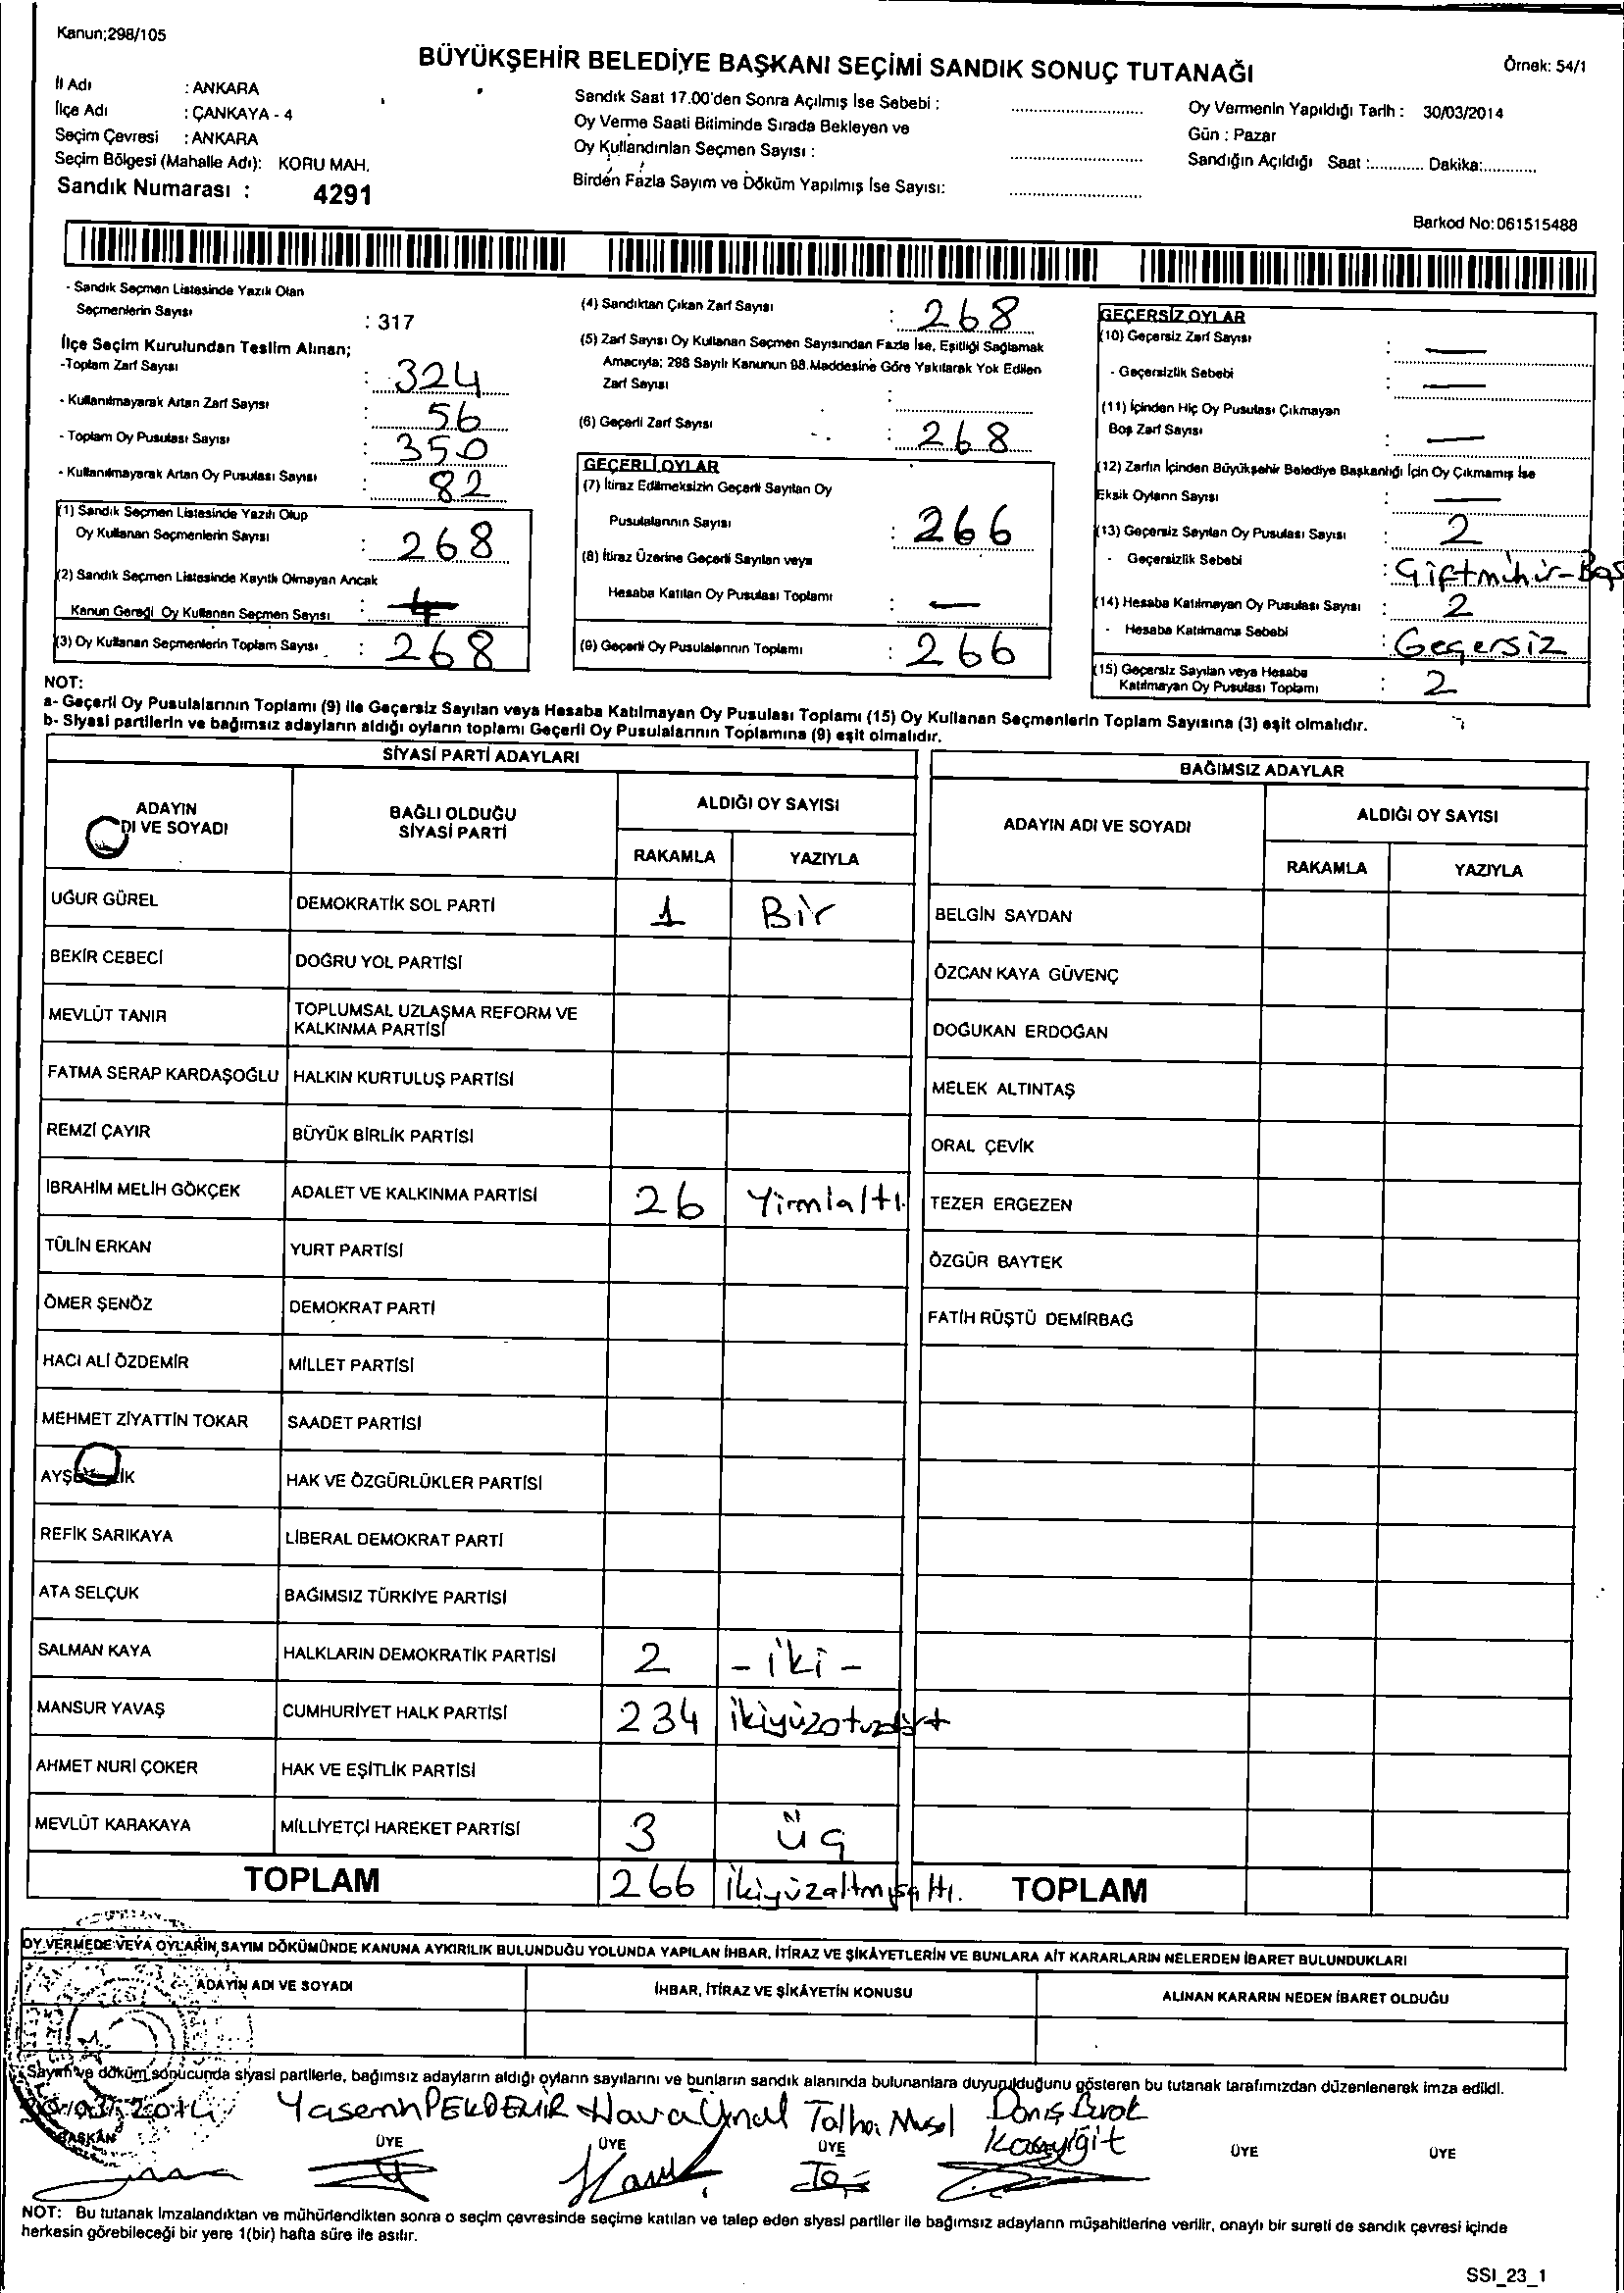 Kanun;298/105
BÜYÜKŞEHİR BELEDİYE BAŞKANI SEÇİMİ SANDIK SONUÇ TUTANAĞI
Örnek: 54/1
İl Adı : ANKARA
İlçe Adı : ÇANKAYA - 4
Seçim Çevresi : ANKARA
Seçim Bölgesi (Mahalle Adı): KORU MAH.
Sandık Numarası : 4291
Sandık Saat 17.00'den Sonra Açılmış İse Sebebi :
Oy Verme Saati Bitiminde Sırada Bekleyen ve
Oy Kullandırılan Seçmen Sayısı :
Birden Fazla Sayım ve Döküm Yapılmış İse Sayısı:
Oy Vermenin Yapıldığı Tarih : 30/03/2014
Gün : Pazar
Sandığın Açıldığı Saat :............ Dakika:............
Barkod No:061515488
- Sandık Seçmen Listesinde Yazılı Olan
Seçmenlerin Sayısı : 317
İlçe Seçim Kurulundan Teslim Alınan;
-Toplam Zarf Sayısı : 324
- Kullanılmayarak Artan Zarf Sayısı : 56
- Toplam Oy Pusulası Sayısı : 350
- Kullanılmayarak Artan Oy Pusulası Sayısı : 82
(1) Sandık Seçmen Listesinde Yazılı Olup
Oy Kullanan Seçmenlerin Sayısı : 268
(2) Sandık Seçmen Listesinde Kayıtlı Olmayan Ancak
Kanun Gereği Oy Kullanan Seçmen Sayısı :
(3) Oy Kullanan Seçmenlerin Toplam Sayısı : 268
(4) Sandıktan Çıkan Zarf Sayısı : 268
(5) Zarf Sayısı Oy Kullanan Seçmen Sayısından Fazla İse, Eşitliği Sağlamak
Amacıyla; 298 Sayılı Kanunun 98.Maddesine Göre Yakılarak Yok Edilen
Zarf Sayısı :
(6) Geçerli Zarf Sayısı : 268
GEÇERLİ OYLAR
(7) İtiraz Edilmeksizin Geçerli Sayılan Oy
Pusulalarının Sayısı : 266
(8) İtiraz Üzerine Geçerli Sayılan veya
Hesaba Katılan Oy Pusulası Toplamı : —
(9) Geçerli Oy Pusulalarının Toplamı : 266
GEÇERSİZ OYLAR
(10) Geçersiz Zarf Sayısı : —
- Geçersizlik Sebebi : —
(11) İçinden Hiç Oy Pusulası Çıkmayan
Boş Zarf Sayısı : —
(12) Zarfın İçinden Büyükşehir Belediye Başkanlığı İçin Oy Çıkmamış İse
Eksik Oyların Sayısı : —
(13) Geçersiz Sayılan Oy Pusulası Sayısı : 2
- Geçersizlik Sebebi : Çiftmühür-Boş
(14) Hesaba Katılmayan Oy Pusulası Sayısı : 2
- Hesaba Katılmama Sebebi : Geçersiz
(15) Geçersiz Sayılan veya Hesaba
Katılmayan Oy Pusulası Toplamı : 2
NOT:
a- Geçerli Oy Pusulalarının Toplamı (9) ile Geçersiz Sayılan veya Hesaba Katılmayan Oy Pusulası Toplamı (15) Oy Kullanan Seçmenlerin Toplam Sayısına (3) eşit olmalıdır.
b- Siyasi partilerin ve bağımsız adayların aldığı oyların toplamı Geçerli Oy Pusulalarının Toplamına (9) eşit olmalıdır.
SİYASİ PARTİ ADAYLARI
ADAYIN
DI VE SOYADI
BAĞLI OLDUĞU
SİYASİ PARTİ
ALDIĞI OY SAYISI
RAKAMLA YAZIYLA
UĞUR GÜREL DEMOKRATİK SOL PARTİ 1 Bir
BEKİR CEBECİ DOĞRU YOL PARTİSİ
MEVLÜT TANIR TOPLUMSAL UZLAŞMA REFORM VE
KALKINMA PARTİSİ
FATMA SERAP KARDAŞOĞLU HALKIN KURTULUŞ PARTİSİ
REMZİ ÇAYIR BÜYÜK BİRLİK PARTİSİ
İBRAHİM MELİH GÖKÇEK ADALET VE KALKINMA PARTİSİ 26 Yirmialtı
TÜLİN ERKAN YURT PARTİSİ
ÖMER ŞENÖZ DEMOKRAT PARTİ
HACI ALİ ÖZDEMİR MİLLET PARTİSİ
MEHMET ZİYATTİN TOKAR SAADET PARTİSİ
HAK VE ÖZGÜRLÜKLER PARTİSİ
REFİK SARIKAYA LİBERAL DEMOKRAT PARTİ
ATA SELÇUK BAĞIMSIZ TÜRKİYE PARTİSİ
SALMAN KAYA HALKLARIN DEMOKRATİK PARTİSİ 2 - iki -
MANSUR YAVAŞ CUMHURİYET HALK PARTİSİ 234 ikiyüzotuzdört
AHMET NURİ ÇOKER HAK VE EŞİTLİK PARTİSİ
MEVLÜT KARAKAYA MİLLİYETÇİ HAREKET PARTİSİ 3 üç
TOPLAM 266 ikiyüzaltmışaltı.
BAĞIMSIZ ADAYLAR
ADAYIN ADI VE SOYADI
ALDIĞI OY SAYISI
RAKAMLA YAZIYLA
BELGİN SAYDAN
ÖZCAN KAYA GÜVENÇ
DOĞUKAN ERDOĞAN
MELEK ALTINTAŞ
ORAL ÇEVİK
TEZER ERGEZEN
ÖZGÜR BAYTEK
FATİH RÜŞTÜ DEMİRBAĞ
TOPLAM
OY VERMEDE VEYA OYLARIN SAYIM DÖKÜMÜNDE KANUNA AYKIRILIK BULUNDUĞU YOLUNDA YAPILAN İHBAR, İTİRAZ VE ŞİKÂYETLERİN VE BUNLARA AİT KARARLARIN NELERDEN İBARET BULUNDUKLARI
ADAYIN ADI VE SOYADI
İHBAR, İTİRAZ VE ŞİKÂYETİN KONUSU
ALINAN KARARIN NEDEN İBARET OLDUĞU
Sayım ve döküm sonucunda siyasi partilerle, bağımsız adayların aldığı oyların sayılarını ve bunların sandık alanında bulunanlara duyurulduğunu gösteren bu tutanak tarafımızdan düzenlenerek imza edildi.
Yasemin PEKDEMİR Hava Ünal Talha
BAŞKAN ÜYE ÜYE ÜYE ÜYE ÜYE
NOT: Bu tutanak imzalandıktan ve mühürlendikten sonra o seçim çevresinde seçime katılan ve talep eden siyasi partiler ile bağımsız adayların müşahitlerine verilir, onaylı bir sureti de sandık çevresi içinde
herkesin görebileceği bir yere 1(bir) hafta süre ile asılır.
SSI_23_1